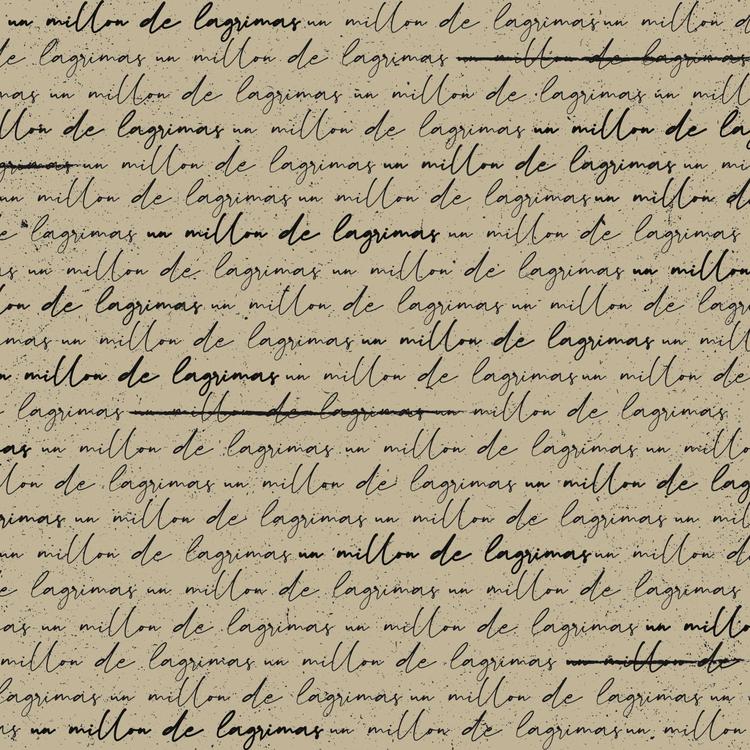 un millon de lagrimas un millon de lagrimas un millon d
de lagrimas un millon de lagrimas un millon de lagrimas
mas un millon de lagrimas un millon de lagrimas un mill
llon de lagrimas un millon de lagrimas un millon de lag
grimas un millon de lagrimas un millon de lagrimas un mi
un millon de lagrimas un millon de lagrimas un millon de
e lagrimas un millon de lagrimas un millon de lagrimas
as un millon de lagrimas un millon de lagrimas un millon
lon de lagrimas un millon de lagrimas un millon de lagr
mas un millon de lagrimas un millon de lagrimas un mill
n millon de lagrimas un millon de lagrimas un millon de
lagrimas un millon de lagrimas un millon de lagrimas
as un millon de lagrimas un millon de lagrimas un millo
lon de lagrimas un millon de lagrimas un millon de lag
rimas un millon de lagrimas un millon de lagrimas un mil
un millon de lagrimas un millon de lagrimas un millon d
e lagrimas un millon de lagrimas un millon de lagrimas
as un millon de lagrimas un millon de lagrimas un millo
millon de lagrimas un millon de lagrimas un millon de
lagrimas un millon de lagrimas un millon de lagrimas un
s un millon de lagrimas un millon de lagrimas un millon